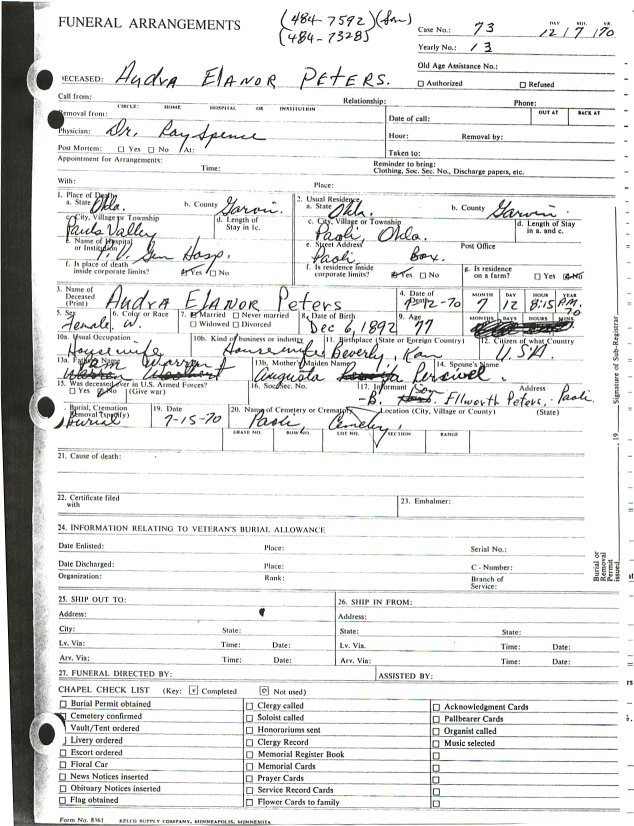 FUNERAL ARRANGEMENTS
(484-7592) (Son)
(484-7328)
Case No.: 73
DAY MO. YR.
12 / 7 / 70
Yearly No.: 13
Old Age Assistance No.:
Authorized Refused
DECEASED: Audra Elanor Peters.
Call from: Relationship: Phone:
CIRCLE: HOME HOSPITAL OR INSTITUTION
Removal from:
Date of call: OUT AT BACK AT
Physician: Dr. Ray Spence
Hour: Removal by:
Post Mortem: Yes No At: Taken to:
Appointment for Arrangements: Time:
Reminder to bring:
Clothing, Soc. Sec. No., Discharge papers, etc.
With: Place:
1. Place of Death
a. State Okla. b. County Garvin.
c. City, Village or Township
Pauls Valley
d. Length of Stay in 1c.
e. Name of Hospital or Institution
P. V. Gen Hosp.
f. Is place of death inside corporate limits? Yes No
2. Usual Residence
a. State Okla. b. County Garvin.
c. City, Village or Township
Paoli, Okla.
d. Length of Stay in a. and c.
e. Street Address Post Office
Paoli Box.
f. Is residence inside corporate limits? Yes No
g. Is residence on a farm? Yes No
3. Name of Deceased (Print) Audra Elanor Peters
4. Date of 7-12-70
MONTH DAY HOUR YEAR
7 12 8:15 P.M. 70
5. Sex Female 6. Color or Race W.
7. Married Never married Widowed Divorced
8. Date of Birth Dec 6, 1892
9. Age 77
MONTHS DAYS HOURS MINS.
10a. Usual Occupation Housewife
10b. Kind of business or industry Housewife
11. Birthplace (State or Foreign Country) Beverly, Kan
12. Citizen of what Country U.S.A.
13a. Fathers Name Warren
13b. Mother's Maiden Name Augusta
14. Spouse's Name
15. Was deceased ever in U.S. Armed Forces?
Yes No (Give war)
16. Soc. Sec. No.
17. Informant (Son Address
-B. Ellworth Peters, Paoli.
18. Burial, Cremation Removal (specify) Burial
19. Date 7-15-70
20. Name of Cemetery or Crematory Location (City, Village or County) (State)
Paoli, Cemetery
GRAVE NO. ROW NO. LOT NO. SECTION RANGE
21. Cause of death:
22. Certificate filed with
23. Embalmer:
24. INFORMATION RELATING TO VETERAN'S BURIAL ALLOWANCE
Date Enlisted: Place: Serial No.:
Date Discharged: Place: C - Number:
Organization: Rank: Branch of Service:
25. SHIP OUT TO:
Address:
City: State:
Lv. Via: Time: Date:
Arv. Via: Time: Date:
26. SHIP IN FROM:
Address:
State: State:
Lv. Via. Time: Date:
Arv. Via: Time: Date:
27. FUNERAL DIRECTED BY: ASSISTED BY:
CHAPEL CHECK LIST (Key: Completed Not used)
Burial Permit obtained
Cemetery confirmed
Vault/Tent ordered
Livery ordered
Escort ordered
Floral Car
News Notices inserted
Obituary Notices inserted
Flag obtained
Clergy called
Soloist called
Honorariums sent
Clergy Record
Memorial Register Book
Memorial Cards
Prayer Cards
Service Record Cards
Flower Cards to family
Acknowledgment Cards
Pallbearer Cards
Organist called
Music selected
Form No. R361 KELCO SUPPLY COMPANY, MINNEAPOLIS, MINNESOTA
Signature of Sub-Registrar
19
Burial or Removal Permit issued